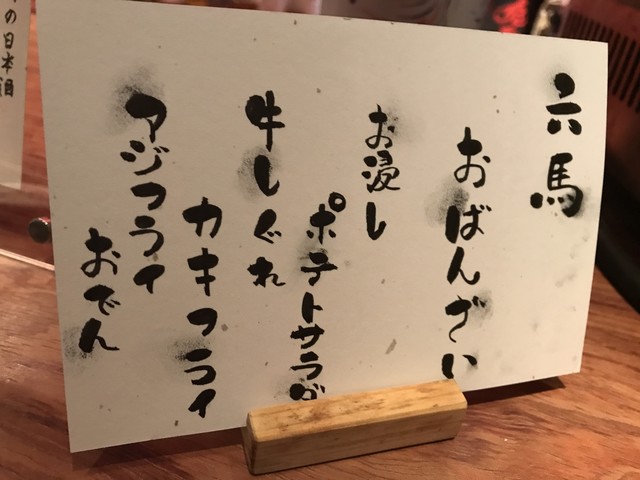 六馬
おばんざい
お浸し
ポテトサラダ
牛しぐれ
カキフライ
アジフライ
おでん
の日本酒